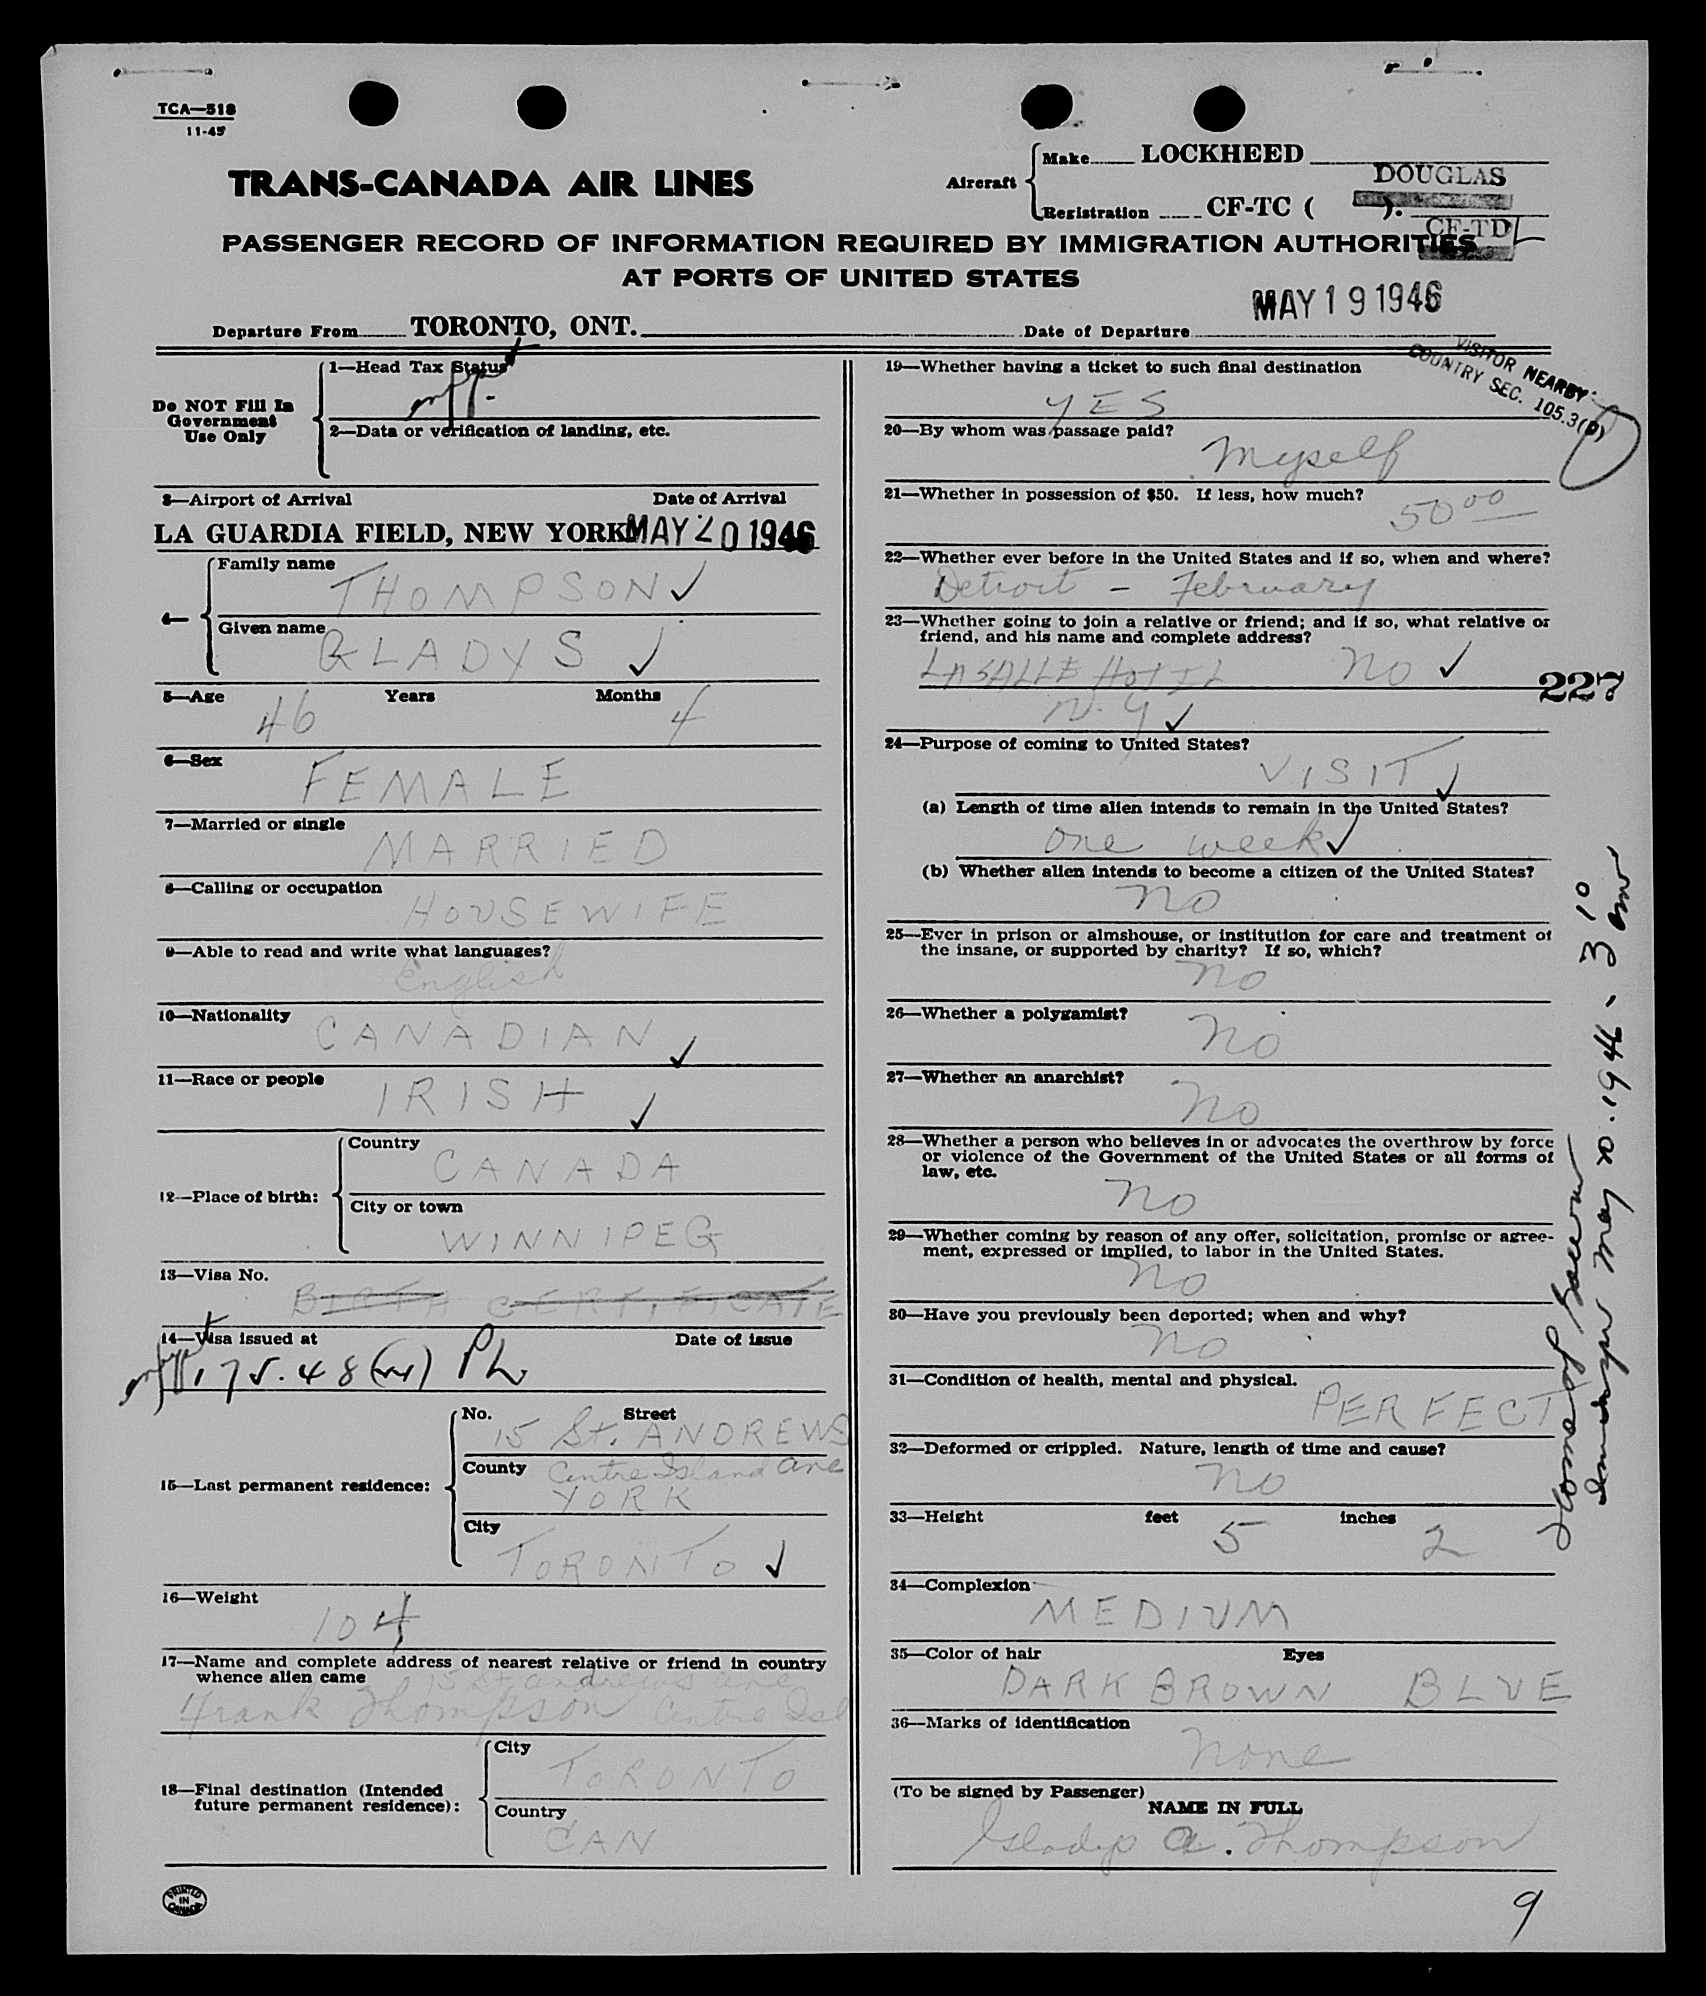 TCA—518
11-45
TRANS-CANADA AIR LINES
Aircraft
Make LOCKHEED
DOUGLAS
Registration CF-TC ( ).
CF-TD L
PASSENGER RECORD OF INFORMATION REQUIRED BY IMMIGRATION AUTHORITIES
AT PORTS OF UNITED STATES
Departure From TORONTO, ONT.
Date of Departure MAY 19 1946
VISITOR NEARBY
COUNTRY SEC. 105.3(P)
Do NOT Fill In
Government
Use Only
1—Head Tax Status
2—Data or verification of landing, etc.
3—Airport of Arrival Date of Arrival
LA GUARDIA FIELD, NEW YORK MAY 20 1946
4—
Family name
THOMPSON
Given name
GLADYS
5—Age 46 Years Months 4
6—Sex
FEMALE
7—Married or single
MARRIED
8—Calling or occupation
HOUSEWIFE
9—Able to read and write what languages?
English
10—Nationality
CANADIAN
11—Race or people
IRISH
12—Place of birth:
Country
CANADA
City or town
WINNIPEG
13—Visa No.
BIRTH CERTIFICATE
14—Visa issued at Date of issue
175.48
15—Last permanent residence:
No. Street
15 St. ANDREWS
County Centre Island Ave
YORK
City
TORONTO
16—Weight
104
17—Name and complete address of nearest relative or friend in country
whence alien came 15 St Andrews Ave
Frank Thompson Centre Isl
18—Final destination (Intended
future permanent residence):
City
TORONTO
Country
CAN
19—Whether having a ticket to such final destination
YES
20—By whom was passage paid?
Myself
21—Whether in possession of $50. If less, how much?
50 00
22—Whether ever before in the United States and if so, when and where?
Detroit - February
23—Whether going to join a relative or friend; and if so, what relative or
friend, and his name and complete address?
LASALLE HOTEL No
N.Y
227
24—Purpose of coming to United States?
VISIT
(a) Length of time alien intends to remain in the United States?
One week
(b) Whether alien intends to become a citizen of the United States?
No
25—Ever in prison or almshouse, or institution for care and treatment of
the insane, or supported by charity? If so, which?
No
26—Whether a polygamist?
No
27—Whether an anarchist?
No
28—Whether a person who believes in or advocates the overthrow by force
or violence of the Government of the United States or all forms of
law, etc.
No
29—Whether coming by reason of any offer, solicitation, promise or agree-
ment, expressed or implied, to labor in the United States.
No
30—Have you previously been deported; when and why?
No
31—Condition of health, mental and physical.
PERFECT
32—Deformed or crippled. Nature, length of time and cause?
No
33—Height feet 5 inches 2
34—Complexion
MEDIUM
35—Color of hair Eyes
DARK BROWN BLUE
36—Marks of identification
None
(To be signed by Passenger)
NAME IN FULL
Gladys A. Thompson
PRINTED
IN
CANADA
9
May 20. 1946